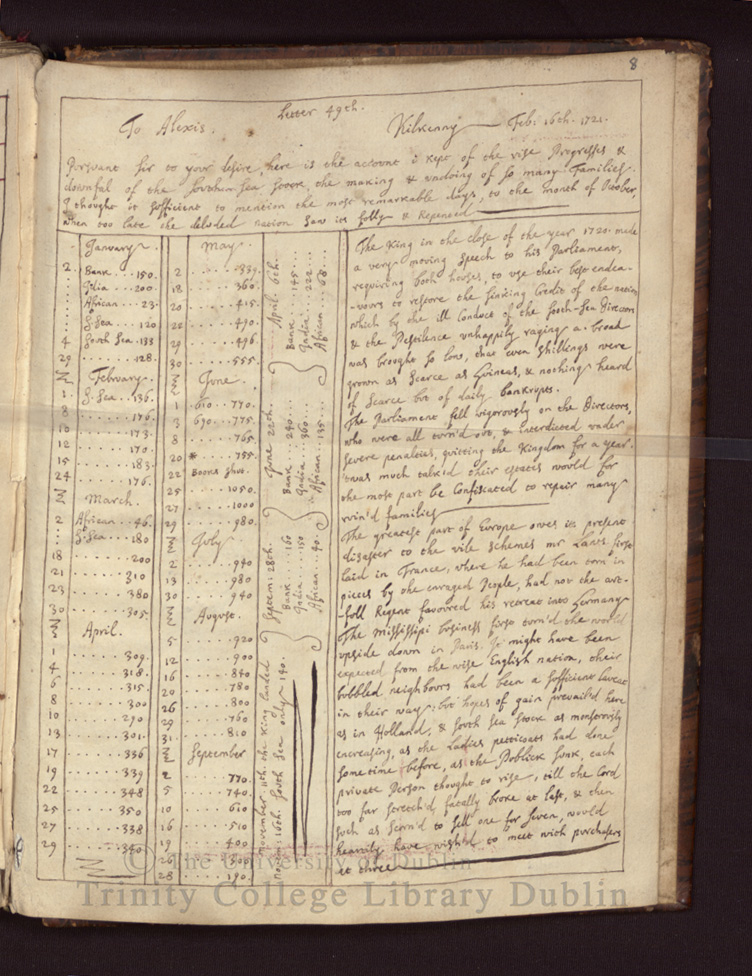 8
Letter 49th.
To Alexis. Kilkenny Feb: 16th. 1721.
Pursuant Sir to your desire, here is the account i kept of the rise Progresses &
downfal of the Southern-Sea stock, the making & undoing of so many Families.
I thought it sufficient to mention the most remarkable days, to the month of October,
when too late the deluded nation saw its folly & Repented
January
2. Bank ... 150.
India ... 200
African .. 23.
S. Sea .. 120
4 South Sea. 133
29 ..... 128.
February
1. S. Sea ... 136.
8 ..... 176.
10 ..... 173.
12 ..... 170.
15 ..... 183.
24 ..... 176.
March.
2 African .. 46.
S. Sea .. 180
18 ..... 200
21 ..... 310
23 ..... 380
30 ..... 305.
April.
1 ..... 309.
4 ..... 318.
6 ..... 315.
8 ..... 300
10 ..... 290
13 ..... 301.
17 ..... 336
19 ..... 339
22 ..... 348
25 ..... 350
27 ..... 338
29 ..... 340
May
2 ..... 339.
18 ..... 360.
20 ..... 415.
28 ..... 490.
29 ..... 496.
30 ..... 555.
June
1 610 .... 770.
3 690 .... 775.
8 ..... 765.
20 ..... 755.
22 Books shut.
25 ..... 1050.
27 ..... 1000
29 ..... 980.
July
2 ..... 940
13 ..... 980
30 ..... 940
August.
5 ..... 920
12 ..... 900
16 ..... 840
20 ..... 780
26 ..... 800
29 ..... 760
31 ..... 810
September
2 ..... 770.
5 ..... 740.
10 ..... 610
16 ..... 510
19 ..... 400
20 ..... 300
28 ..... 190.
April 6th.
Bank .... 145
India ... 222
African ... 68
June 22th.
Bank ... 240
India ... 360
African ... 135
Septem: 28th.
Bank ... 160
India ... 150
African .. 40.
November 11th the King landed
Novem: 16th. South Sea only 140.
The King in the close of the year 1720. made
a very moving speech to his Parliament,
requiring both houses, to use their best endea-
-vours to restore the sincing Credit of the nation
which by the ill Conduct of the South-Sea Directors
& the Pestilence unhappily raging a-broad
was brought so low, that even shillings were
grown as Scarce as Guineas, & nothing heard
of Scarce but of daily bankrupts.
The Parliament fell vigorously on the Directors,
who were all turn'd out, & interdicted under
severe penalties, quitting the Kingdom for a year.
'twas much talk'd their estates would for
the most part be Confiscated to repair many
ruin'd families
The greatest part of Europe owes its present
disaster to the vile schemes mr Laws first
laid in France, where he had been torn in
pieces by the enraged People, had not the art-
-full Regent favoured his retreat into Germany
The Mississipi business first turn'd the world
upside down in Paris. It might have been
expected from the wise English nation, their
bubbled neighbours had been a sufficient Caveat
in their way: but hopes of gain prevail'd here
as in Holland, & South Sea stock as monstrously
encreasing, as the Ladies petticoats had done
some time before, as the Publick sunk, each
private Person thought to rise, till the Cord
too far stretch'd fatally broke at last, & then
such as scorn'd to sell one for seven, would
heartily have wish'd to meet with purchasers
at three
© The University of Dublin
Trinity College Library Dublin